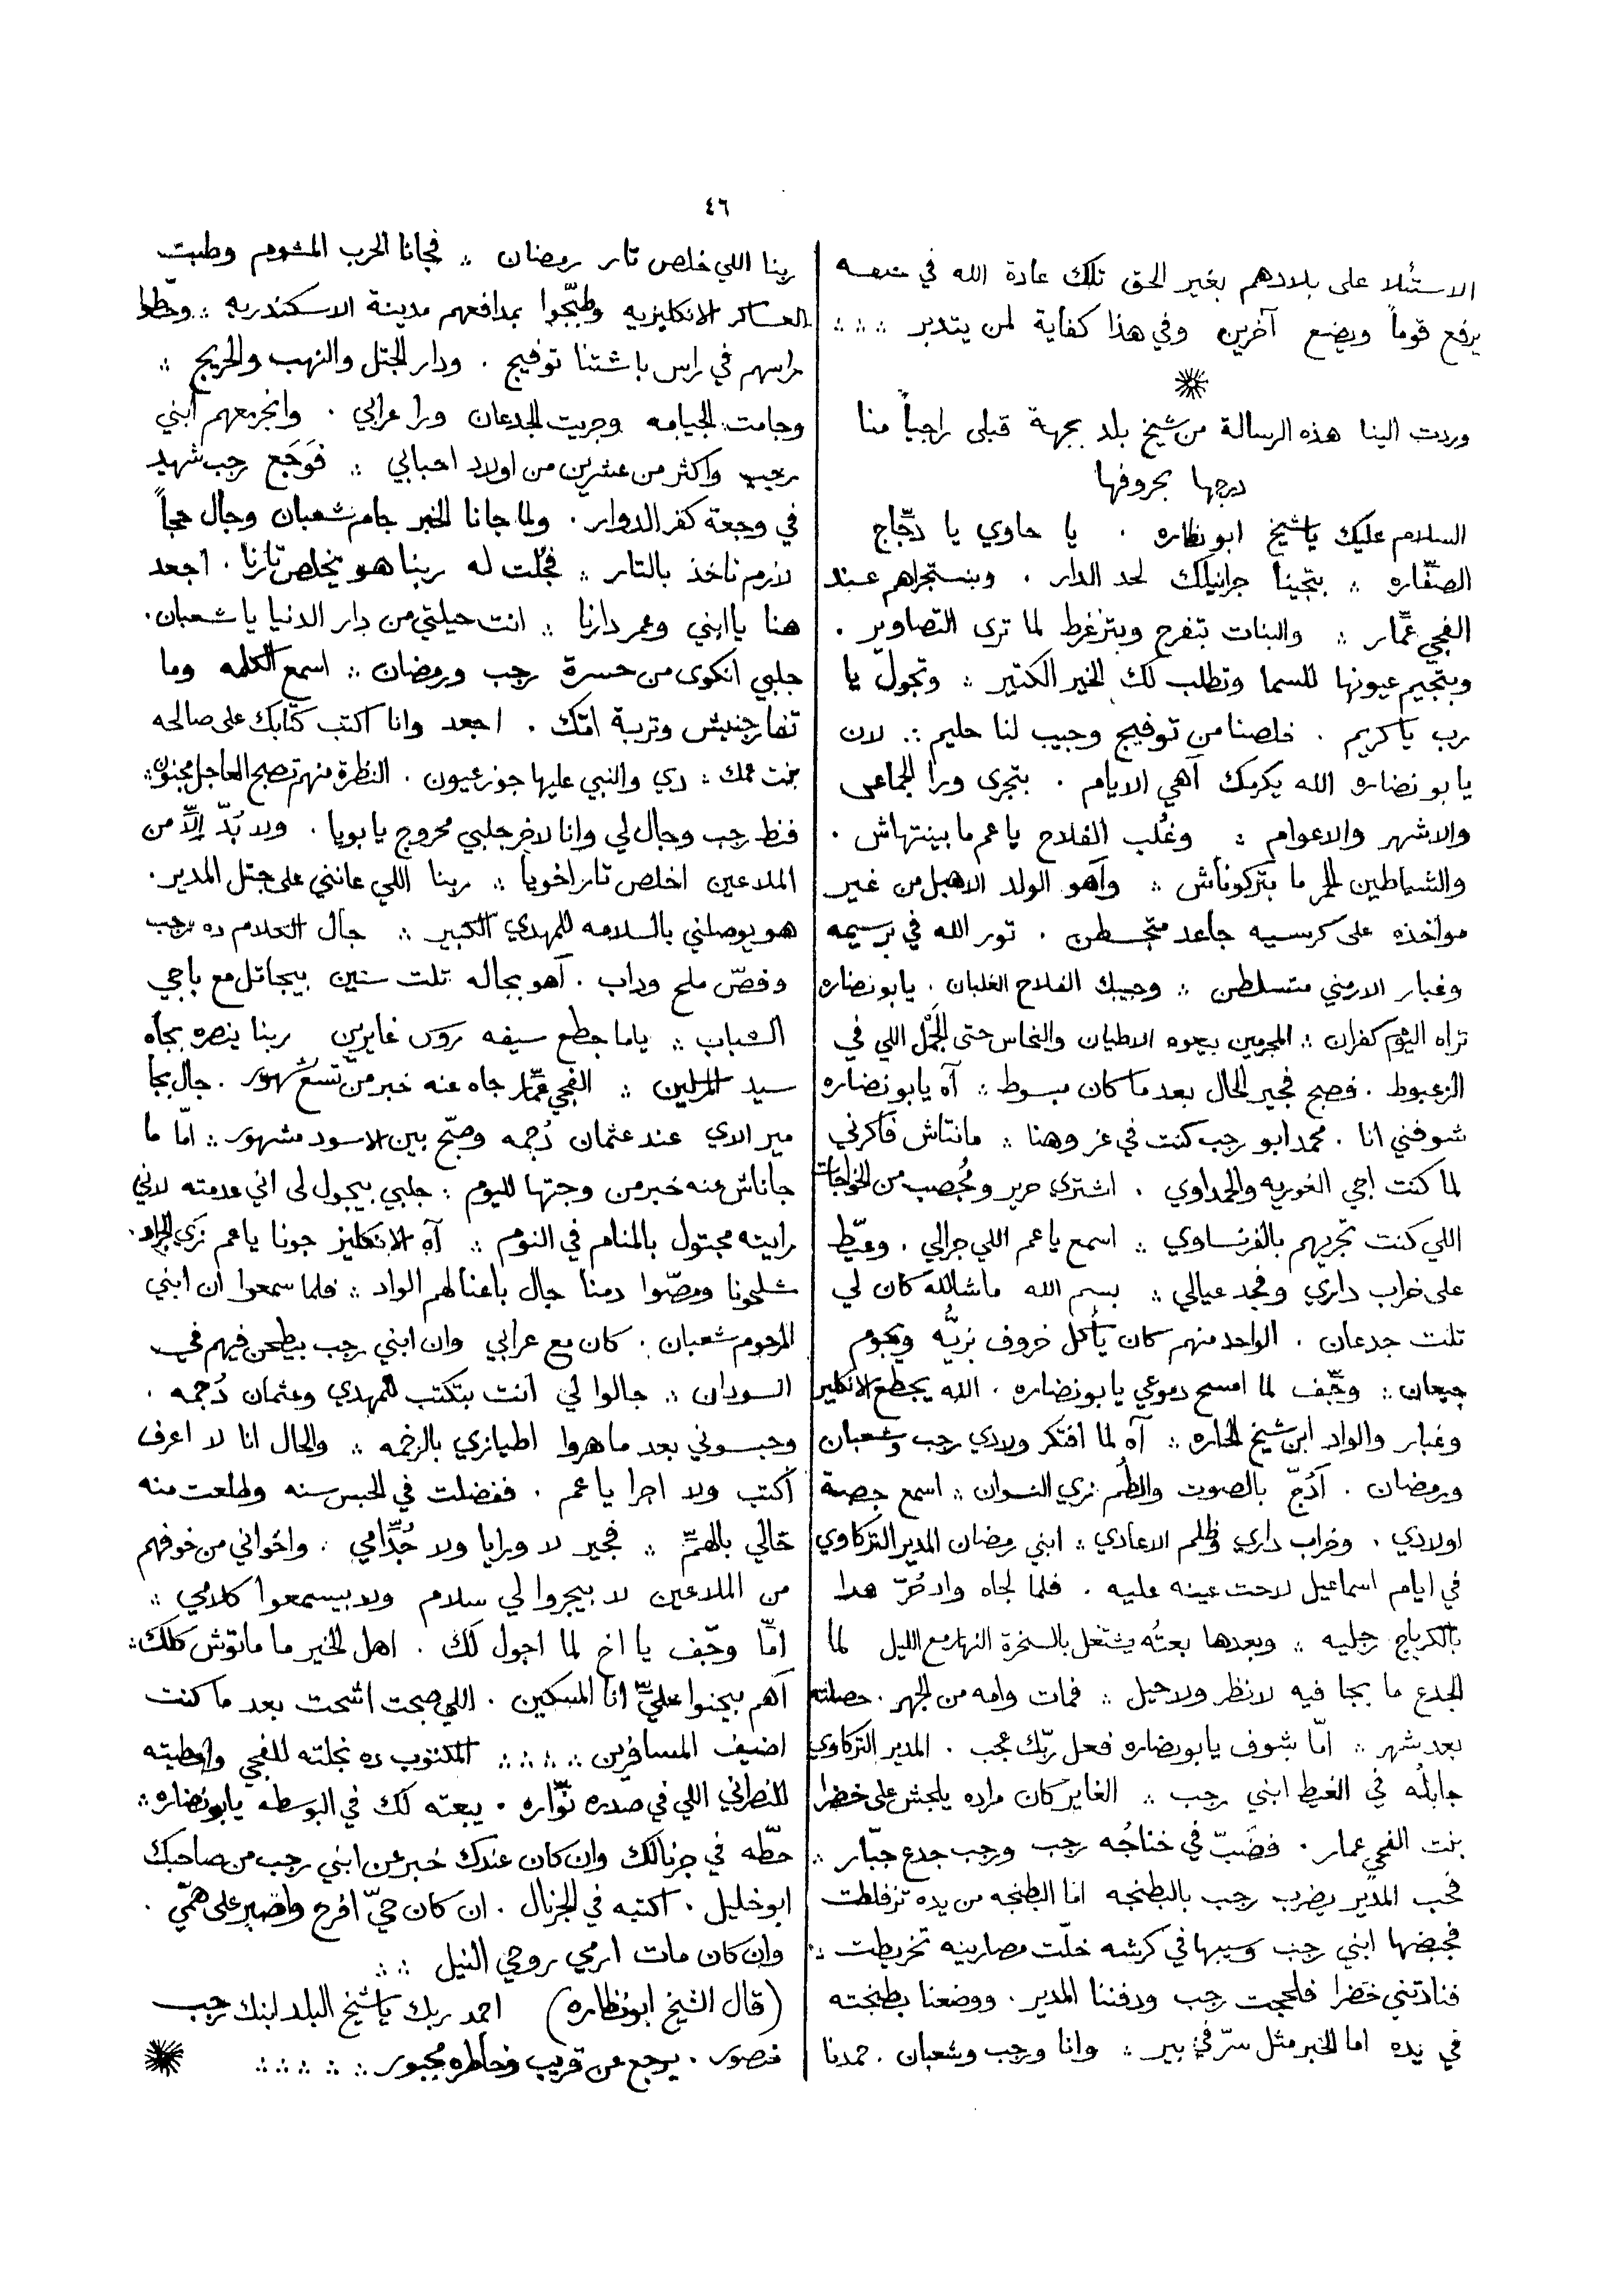 ٤٦
الاستئلا على بلادهم بغير الحق تلك عادة الله في خلقه
يرفع قوماً ويضع آخرين وفي هذا كفاية لمن يتدبر ∴ ∴
وردت الينا هذه الرسالة من شيخ بلد بجهة قبلى راجياً منا
درجها بحروفها
السلام عليك ياشيخ ابو نظاره . يا حاوي يا دجّاج
الصفّاره ∴ بتجينا جرانيلك لحد الدار . وبنستجراهم عند
الفجي عمّار ∴ والبنات بتفرح وبتزغرط لما ترى التصاوير .
وبتجيم عيونها للسما وتطلب لك الخير الكتير ∴ وتجول يا
رب ياكريم . خلصنا من توفيج وجيب لنا حليم ∴ لان
يابو نضاره الله يكرمك آهي الايام . بتجرى ورا الجماعى
والاشهر والاعوام ∴ وغُلب الفلاح ياعم ما بينتهاش .
والشياطين الحمر ما بتركوناش ∴ وآهو الولد الاهبل من غير
مواخذه على كرسيه جاعد متجسطن . تور الله في برسيمه
وغبار الارمني متسلطن ∴ وجيبك الفلاح الغلبان . يابو نضاره
تراه اليوم كفران ∴ المجرمين بيعوه الاطيان والنحاس حتى الجَمْل اللي في
الزعبوط . فصبح فجير الحال بعد ما كان مبسوط ∴ آه يابو نضاره
شوفني انا . محمد ابو رجب كنت في عز وهنا ∴ مانتاش فاكرني
لما كنت اجي الغوريه والحمداوي . اشتري حرير ومُجصب من الخواجات
اللي كنت تجريهم بالفرنساوي ∴ اسمع ياعم اللي جرالي . وعيّط
على خراب داري وفجد عيالي ∴ بسم الله ماشالله كان لي
تلت جدعان . الواحد منهم كان يأكل خروف بزيُّه ويجوم
جيعان ∴ وجّف لما امسح دموعي يابو نضاره . الله يجطع الانكليز
وغبار والواد ابن شيخ الحاره ∴ آه لما افتكر ولادي رجب وشعبان
ورمضان . آدُجّ بالصوت والطُم نزي النسوان ∴ اسمع جصة
اولادي . وخراب داري وظلم الاعادي ∴ ابني رمضان المدير التركاوي
في ايام اسماعيل لاحت عينه عليه . فلما لجاه واد حُرّ هدا
بالكرباج رجليه ∴ وبعدها بعتُه يشتغل بالسخرة النهار مع الليل لما
الجدع ما بجا فيه لانظر ولاحيل ∴ فمات وامه من الجهر . حصلته
بعد شهر ∴ امّا شوف يابو نضاره فعل ربّك عجب . المدير التركاوي
جابلُه في الغيط ابني رجب ∴ الغاير كان مراده يلجش على خضرا
بنت الفجي عمار . فضَبّ في خناجُه رجب ورجب جدع جبّار ∴
فحب المدير يضرب رجب بالبطنجه امّا البطنجه من يده تزفلطت
فجبضها ابني رجب وسيبها في كرشه خلّت مصارينه تخريطت ∴
فنادتني خضرا فلحجت رجب ودفننا المدير . ووضعنا بطنجته
في يده اما الخبر مثل سرّ في بير ∴ وانا ورجب وشعبان . حمدنا
ربنا اللي خلص تار رمضان ∴ فجانا الحرب المشوم وطبت
العساكر الانكليزيه وطبّجوا بمدافعهم مدينة الاسكندريه ∴ وحطوا
راسهم في راس باشتنا توفيج . ودار الجتل والنهب والحريج ∴
وجامت الجيامه وجريت الجدعان ورا عرابي . وانجر معهم ابني
رجب واكثر من عشرين من اولاد احبابي ∴ فوَجَع رجب شهيد
في وجعة كفر الدوار . ولما جانا الخبر جام شعبان وجال حجاً
لازم ناخذ بالتار ∴ فجُلت له ربنا هو يخلص تارنا . اجعد
هنا يا ابني وعمر دارنا ∴ انت حيلتي من دار الدنيا ياشعبان .
جلبي انكوى من حسرة رجب ورمضان ∴ اسمع الكلمه وما
تفارجنيش وتربة امّك . اجعد وانا اكتب كتابك على صالحه
بنت عمك ∴ دي والنبي عليها جوز عيون . النظرة منهم تصبح العاجل مجنون ∴
فنط رجب وجال لي وانا لاخر جلبي محروج يابويا . ولا بُدّ إلاَّ من
الملاعين اخلص تار اخويا ∴ ربنا اللي عانني على جتل المدير .
هو يوصلني بالسلامه للمهدي الكبير ∴ جال الكلام ده رجب
وفصّ ملح وداب . آهو بجاله تلت سنين بيجاتل مع باجي
الشباب ∴ ياما جطع سيفه روس غابرين ربنا ينصره بجاه
سيد المرسلين ∴ الفجي عمّار جاه عنه خبر من تسع شهور . جال بجا
مير الاي عند عثمان دُجمه وصبّح بين الاسود مشهور ∴ امّا ما
جاناش عنه خبر من وجتها لليوم ∴ جلبي بيجول لى اني عدمته لاني
رايته مجتول بالمنام في النوم ∴ آه الانكليز جونا ياعم نزي الجراد .
شلحونا ومصّوا دمنا جال باعنا لهم الواد ∴ فلما سمعوا ان ابني
المرحوم شعبان . كان مع عرابي وان ابني رجب بيطحن فيهم في
السودان ∴ جالوا لي انت بتكتب للمهدي وعثمان دُجمه .
وحبسوني بعد ما هروا اطيازي بالزخمه ∴ والحال انا لا اعرف
أكتب ولا اجرا ياعم . ففضلت في الحبس سنه وطلعت منه
خالي بالهمّ ∴ فجير لا ورايا ولا جُدّامي . واخواني من خوفهم
من الملاعين لا بيجروا لي سلام ولا بيسمعوا كلامي ∴
امّا وجّف يا اخ لما اجول لك . اهل الخير ما ماتوش كلك ∴
آهم بيحنوا عليّ انا المسكين . اللي صبحت اشحت بعد ما كنت
اضيف المسافرين ∴ ∴ ∴ المكتوب ده نجلته للفجي واعطيته
للنصراني اللي في صدره نوّاره . يبعته لك في البوسطه يابو نضاره ∴
حطّه في جرنالك وان كان عندك خبر عن ابني رجب من صاحبك
ابو خليل . اكتبه في الجرنال . ان كان حيّ افرح واصبر على همّي .
وان كان مات ارمي روحي النيل ∴
(قال الشيخ ابو نظاره) احمد ربك ياشيخ البلد ابنك رجب
منصور . يرجع من قريب وخاطره مجبور ∴ ∴ ∴